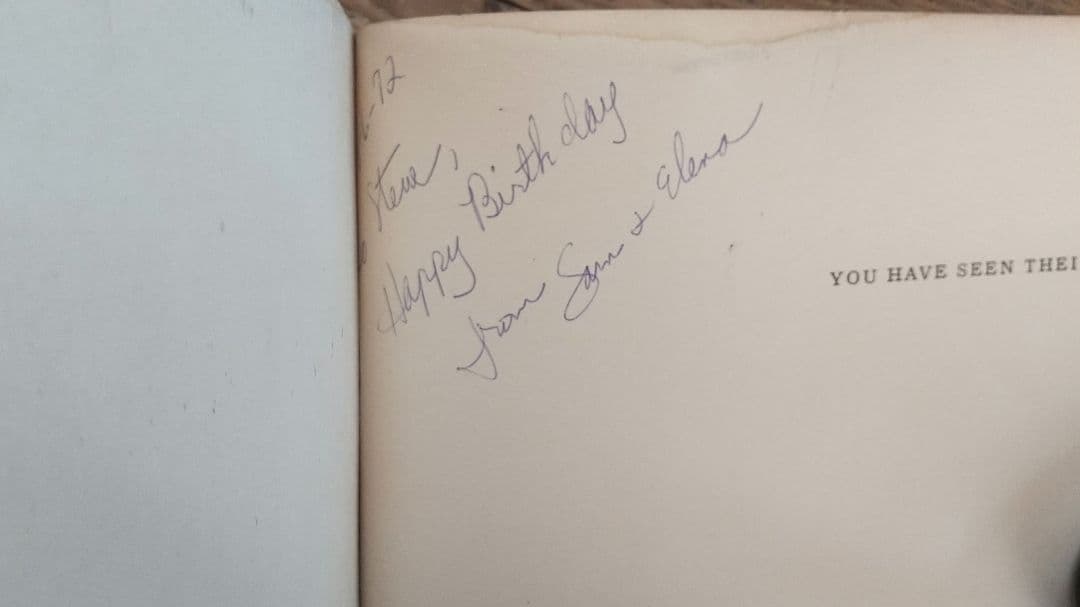 6-72
To Steve,
Happy Birthday
from Sam & Elena
YOU HAVE SEEN THEI